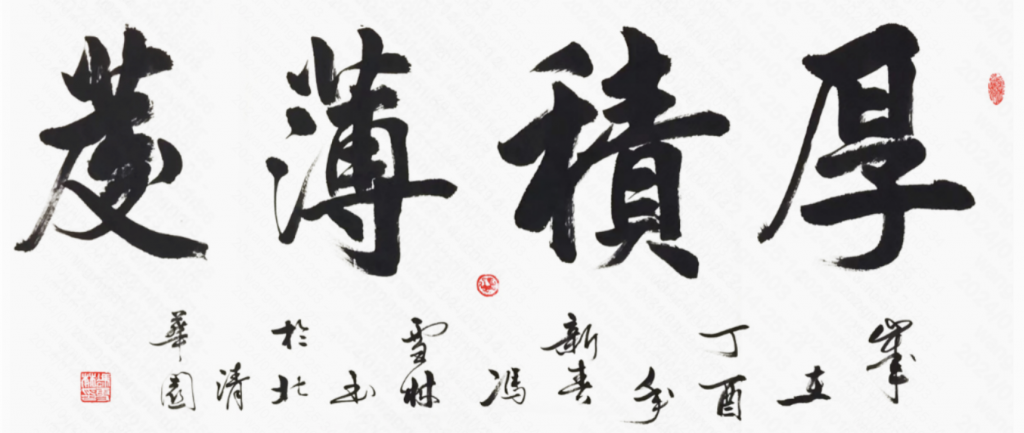 厚積薄發
歲在丁酉年新春馮雪林書於北清華園